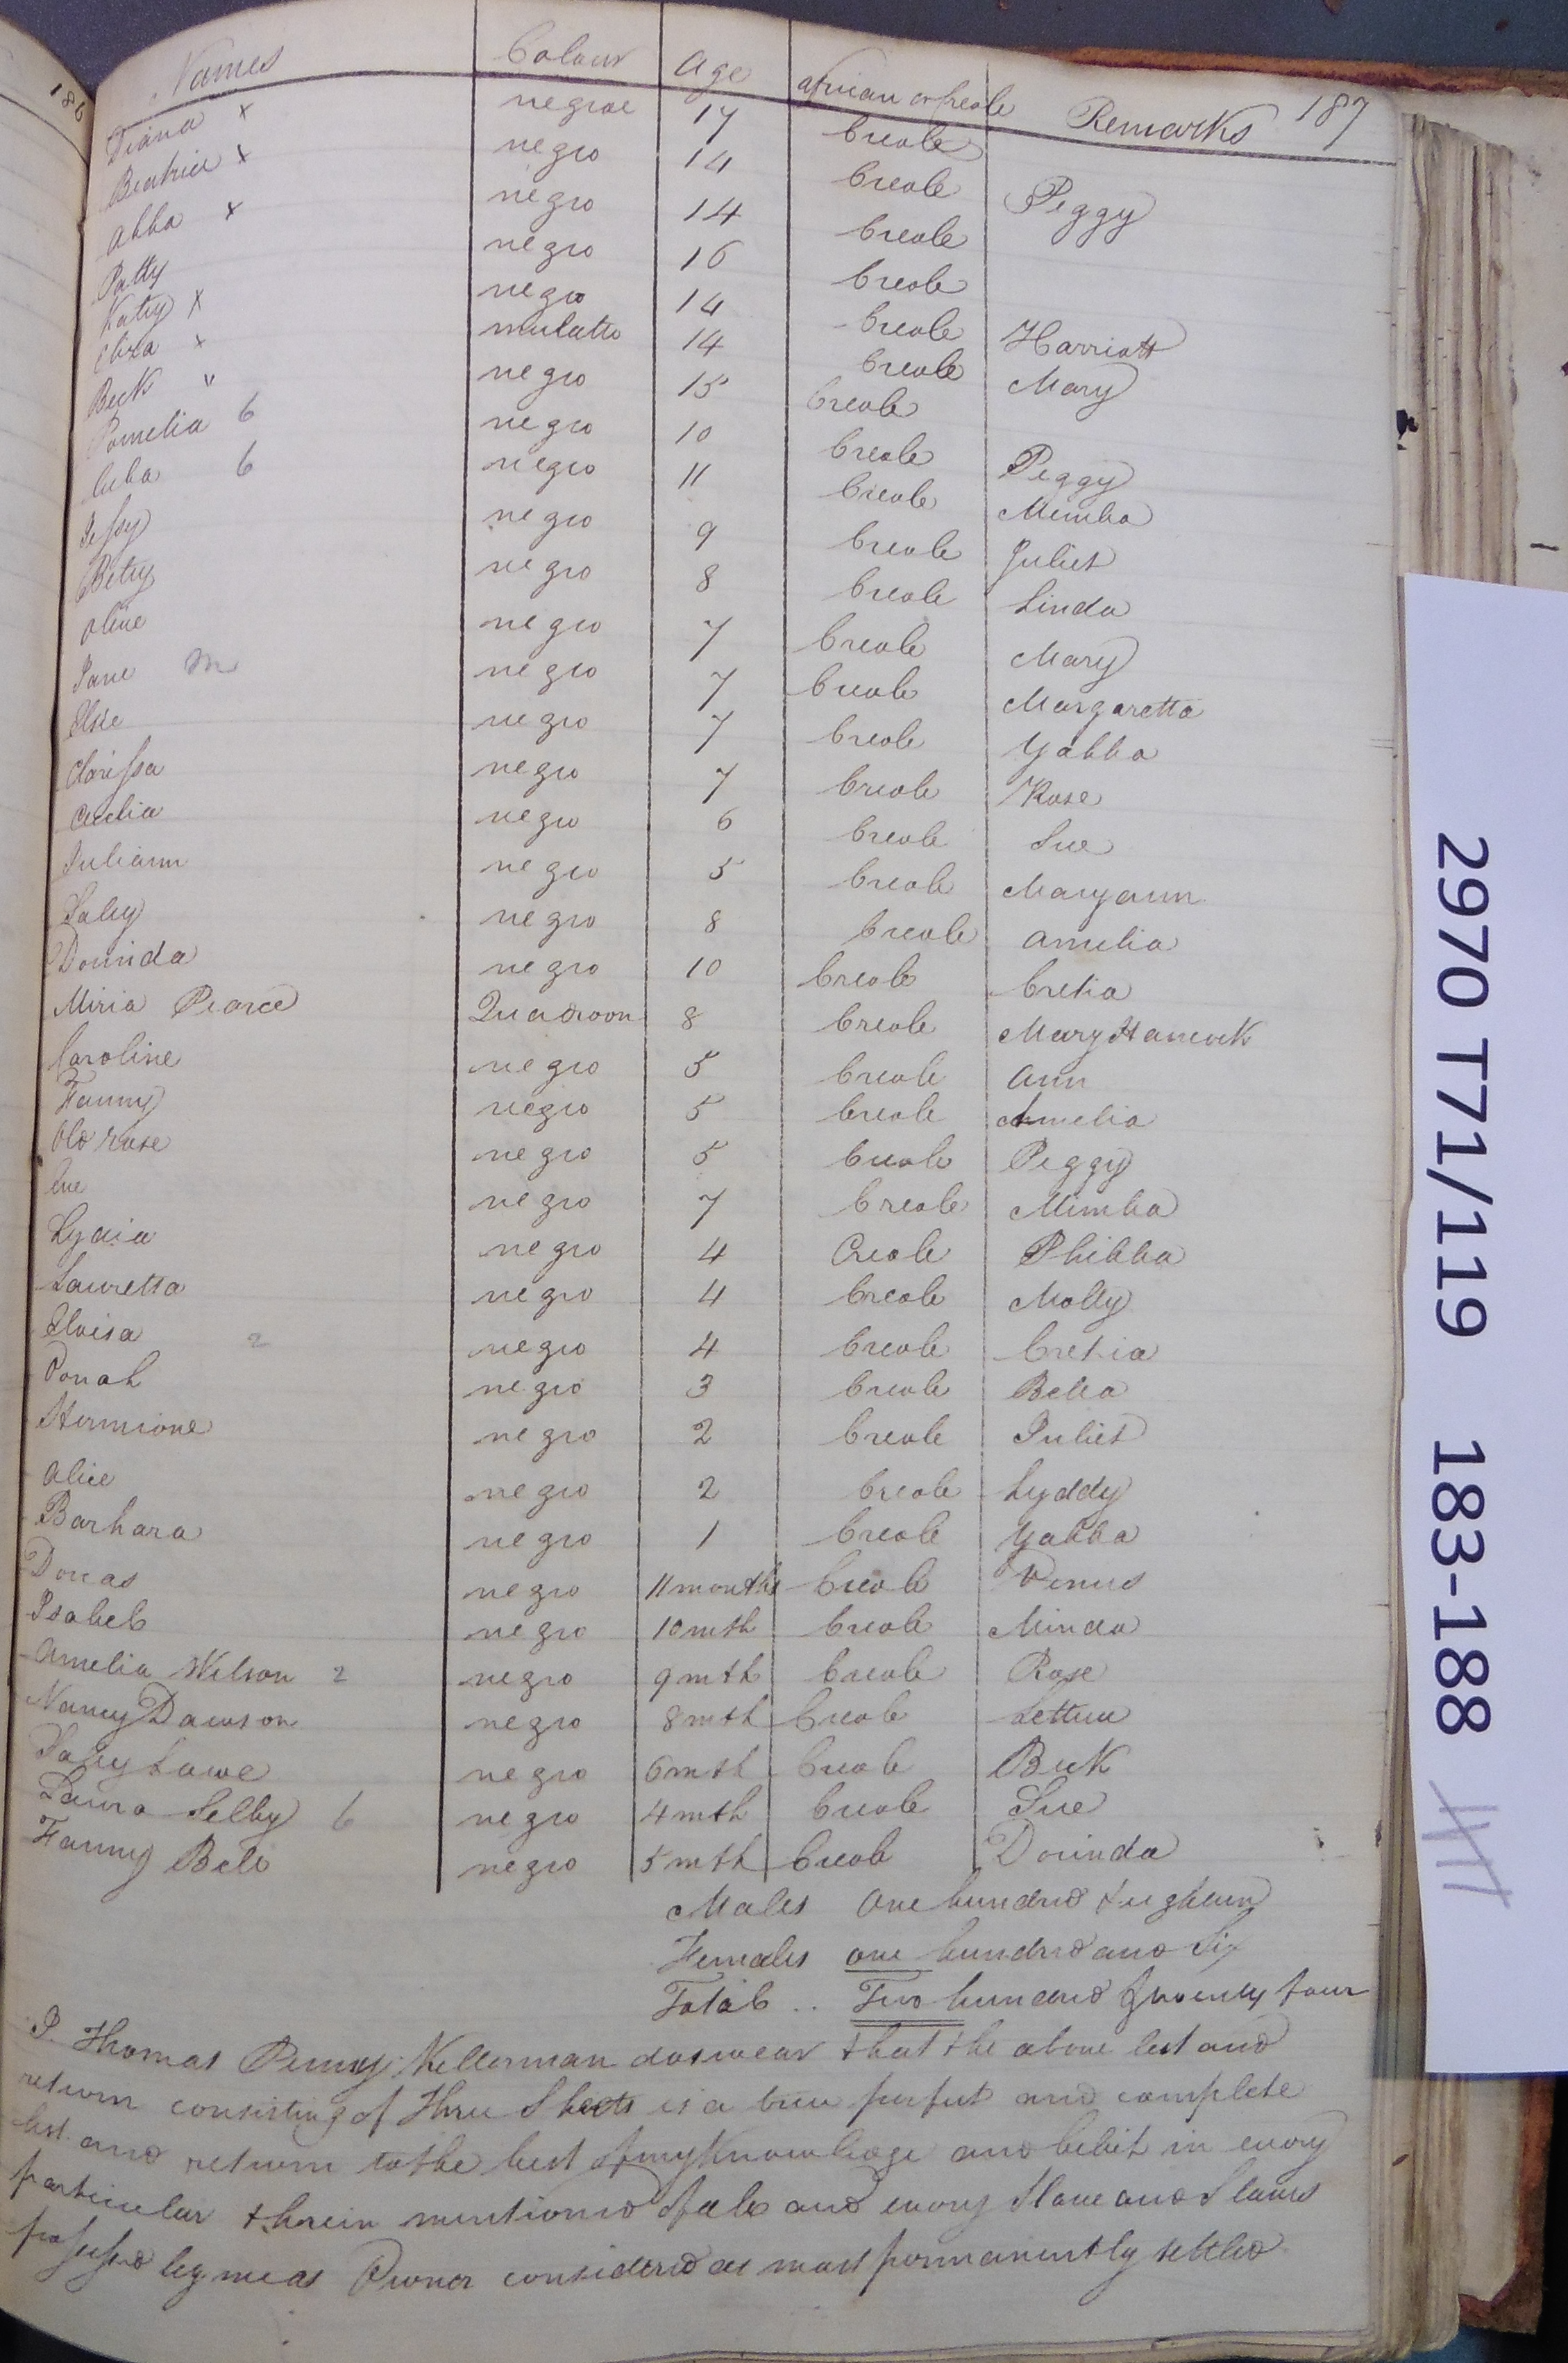 186
Names Colour Age African or Creole Remarks 187
Diana x negroe 17 Creole
Beatrice x negro 14 Creole Peggy
Abba x negro 14 Creole
Patty negro 16 Creole
Katy x negro 14 Creole Harriott
Eliza x mulatto 14 Creole Mary
Beck " negro 15 Creole
Pamelia 6 negro 10 Creole Peggy
Cuba 6 negro 11 Creole Mimba
Jessy negro 9 Creole Juliet
Betsy negro 8 Creole Linda
Olive negro 7 Creole Mary
Jane m negro 7 Creole Margaretta
Elsie negro 7 Creole Yabba
Clarissa negro 7 Creole Rose
Cecelia negro 6 Creole Sue
Juliann negro 5 Creole Maryann
Saley negro 8 Creole Amelia
Dorinda negro 10 Creole Cretia
Miria Pearce Quadroon 8 Creole Mary Hancock
Caroline negro 5 Creole Ann
Fanny negro 5 Creole Amelia
Old Rose negro 5 Creole Peggy
Eve negro 7 Creole Mimba
Lydia negro 4 Creole Phibba
Lauretta negro 4 Creole Molly
Eloisa 2 negro 4 Creole Cretia
Donah negro 3 Creole Bella
Hermione negro 2 Creole Juliet
Alice negro 2 Creole Lyddy
Barbara negro 1 Creole Yabba
Dorcas negro 11 months Creole Venus
Isabel negro 10 mth Creole Minda
Amelia Wilson 2 negro 9 mth Creole Rose
Nancy Dawson negro 8 mth Creole Lettuce
Saley Lowe negro 6 mth Creole Beck
Laura Selby 6 negro 4 mth Creole Sue
Fanny Bell negro 5 mth Creole Dorinda
Males One hundred & eighteen
Females one hundred and Six
Total .. Two hundred & twenty four
I Thomas Penny Kellerman do swear that the above list and
return consisting of Three Sheets is a true perfect and complete
list and return to the best of my Knowledge and belief in every
particular therein mentioned of all and every Slave and Slaves
possessed by me as Owner considered as most permanently settled
2970 T71/119 183-188